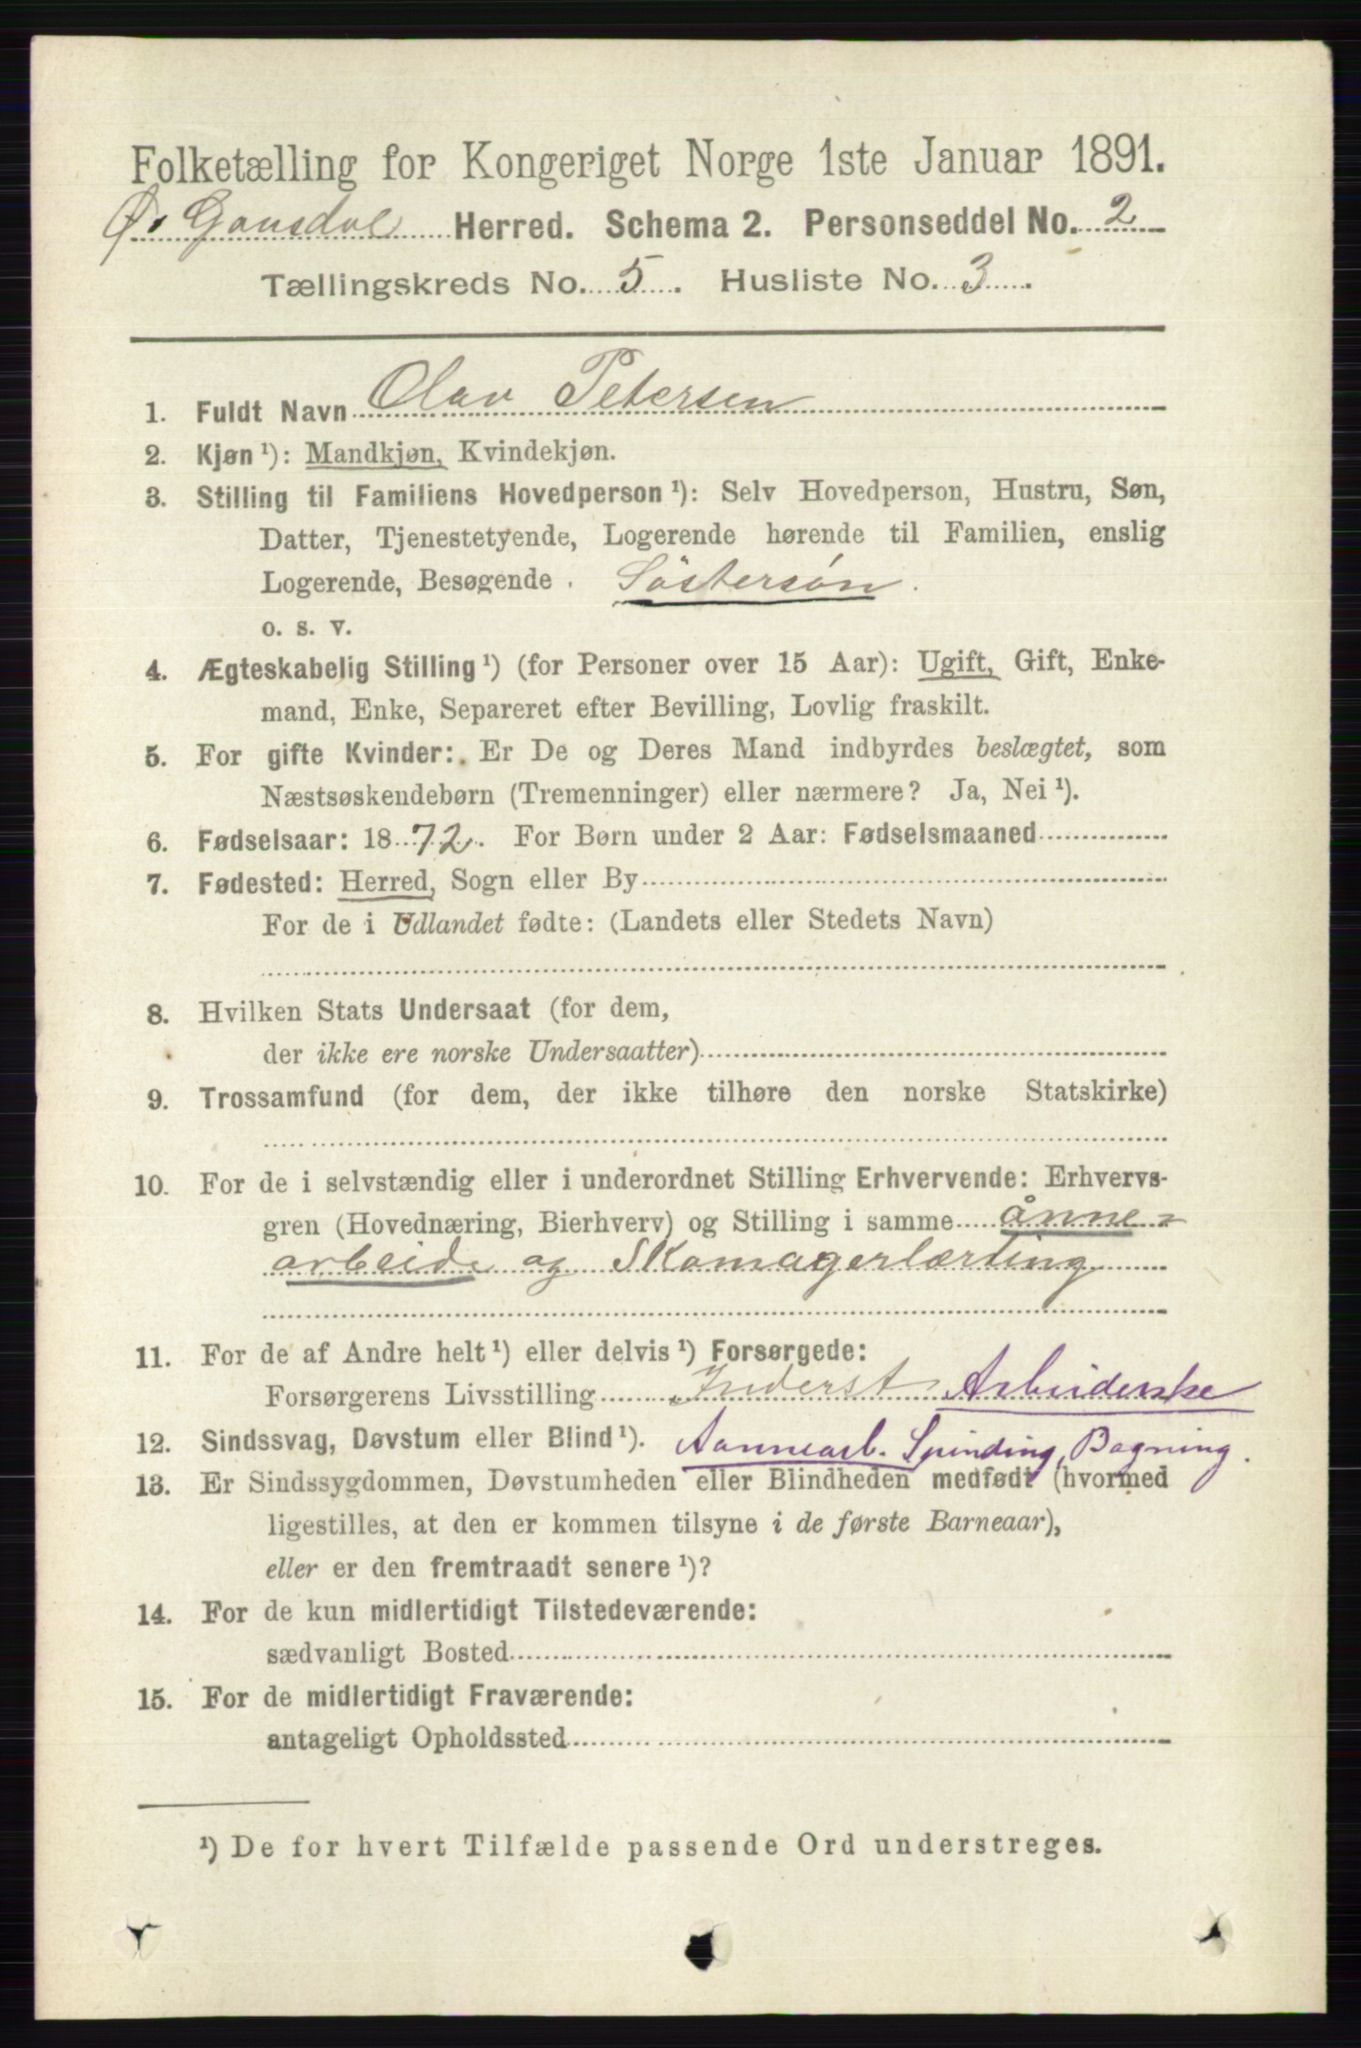 Folketælling for Kongeriget Norge 1ste Januar 1891.
Ø. Gausdal Herred. Schema 2. Personseddel No. 2
Tællingskreds No. 5. Husliste No. 3.
1. Fuldt Navn Olav Petersen
2. Kjøn ¹): Mandkjøn, Kvindekjøn.
3. Stilling til Familiens Hovedperson ¹): Selv Hovedperson, Hustru, Søn,
Datter, Tjenestetyende, Logerende hørende til Familien, enslig
Logerende, Besøgende . Söstersön.
o. s. v.
4. Ægteskabelig Stilling ¹) (for Personer over 15 Aar): Ugift, Gift, Enke-
mand, Enke, Separeret efter Bevilling, Lovlig fraskilt.
5. For gifte Kvinder: Er De og Deres Mand indbyrdes beslægtet, som
Næstsøskendebørn (Tremenninger) eller nærmere? Ja, Nei ¹).
6. Fødselsaar: 1872. For Børn under 2 Aar: Fødselsmaaned
7. Fødested: Herred, Sogn eller By
For de i Udlandet fødte: (Landets eller Stedets Navn)
8. Hvilken Stats Undersaat (for dem,
der ikke ere norske Undersaatter)
9. Trossamfund (for dem, der ikke tilhøre den norske Statskirke)
10. For de i selvstændig eller i underordnet Stilling Erhvervende: Erhvervs-
gren (Hovednæring, Bierhverv) og Stilling i samme ånne=
arbeide og Skomagerlærling
11. For de af Andre helt ¹) eller delvis ¹) Forsørgede:
Forsørgerens Livsstilling Inderst Arbeiderske
12. Sindssvag, Døvstum eller Blind ¹). Aannearb. Spinding, Bagning.
13. Er Sindssygdommen, Døvstumheden eller Blindheden medfødt (hvormed
ligestilles, at den er kommen tilsyne i de første Barneaar),
eller er den fremtraadt senere ¹)?
14. For de kun midlertidigt Tilstedeværende:
sædvanligt Bosted
15. For de midlertidigt Fraværende:
antageligt Opholdssted
¹) De for hvert Tilfælde passende Ord understreges.